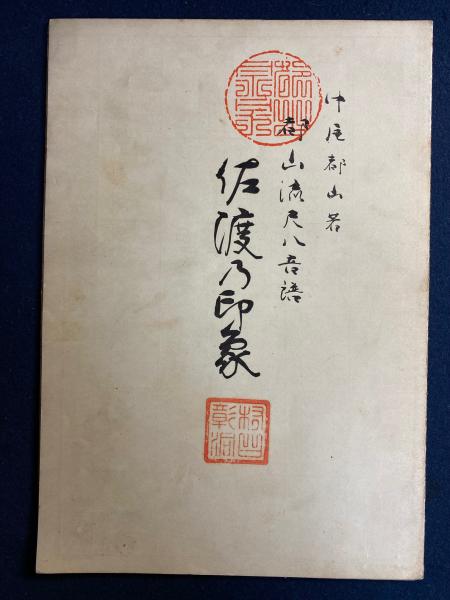 中尾都山著
都山流尺八音譜
佐渡乃印象